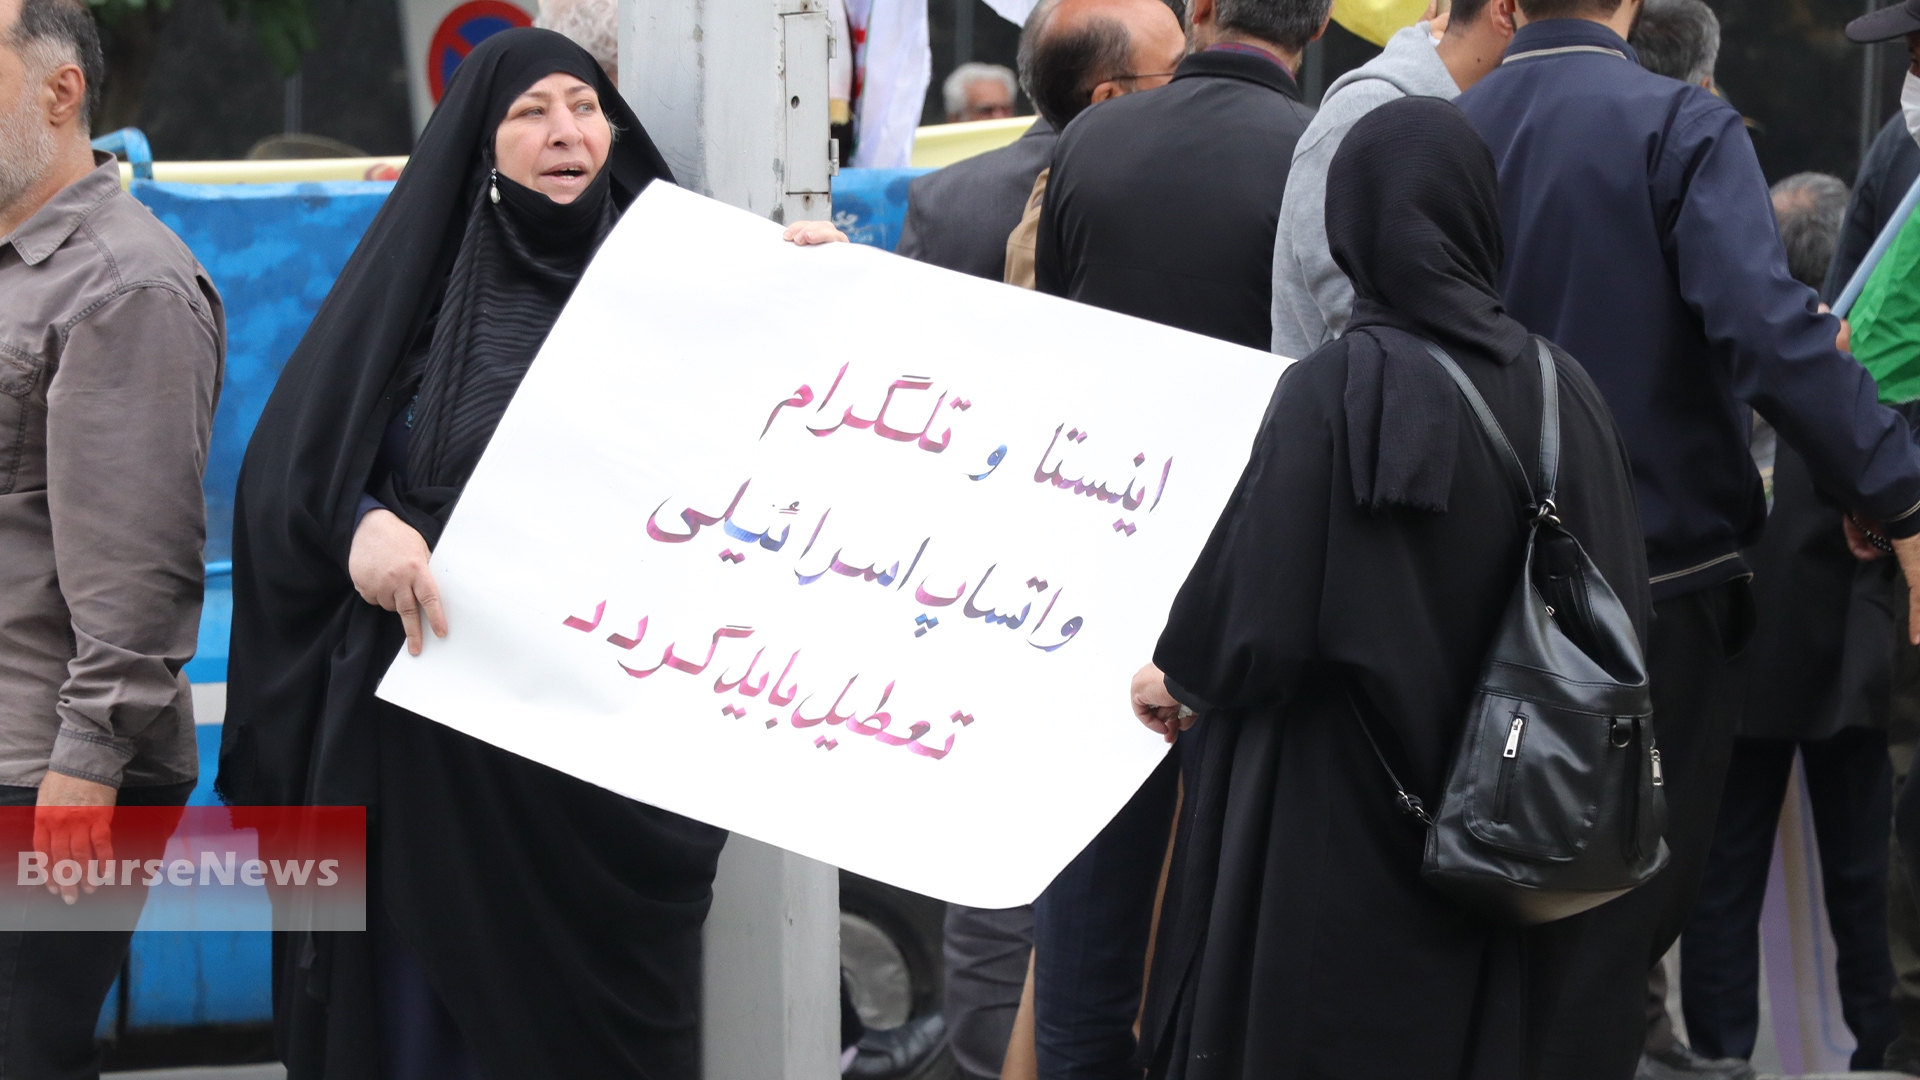 اینستا و تلگرام
واتساپ اسرائیلی
تعطیل باید گردد
BourseNews